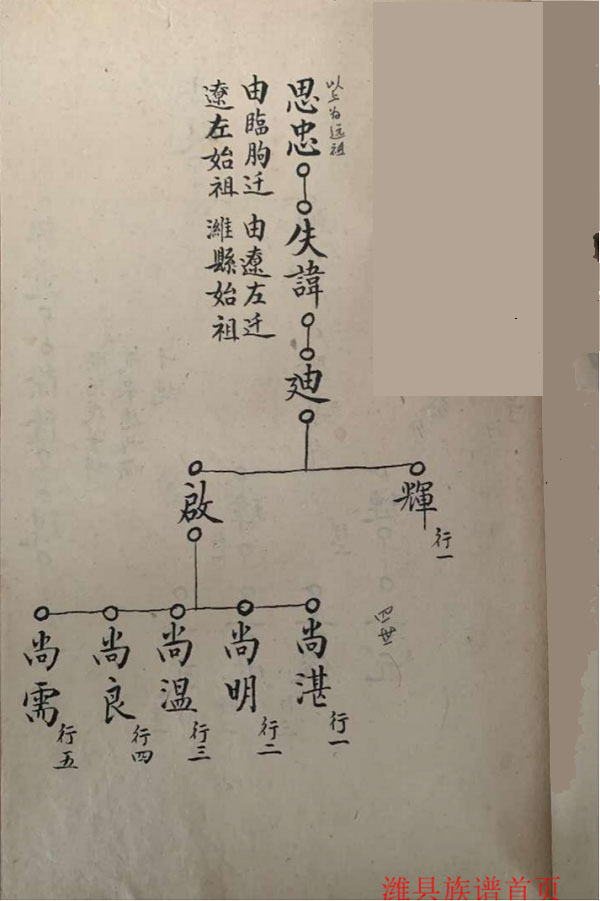 以上为远祖
思忠
由臨朐迁
遼左始祖
失諱
由遼左迁
濰縣始祖
廸
輝
行一
啟
四世
尚湛
行一
尚明
行二
尚温
行三
尚良
行四
尚需
行五
潍县族谱首页